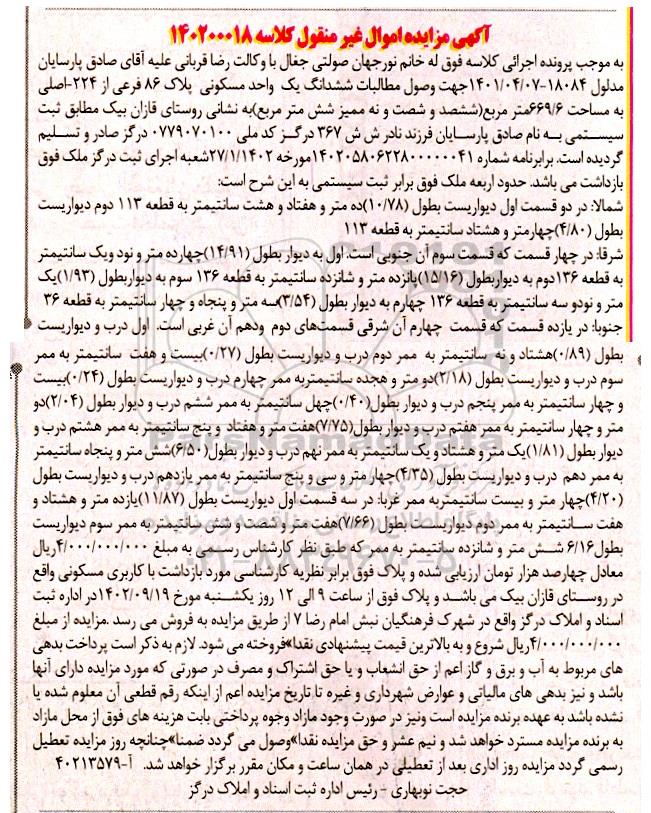 آگهی مزایده اموال غیر منقول کلاسه ۱۴۰۲۰۰۰۱۸
به موجب پرونده اجرائی کلاسه فوق له خانم نورجهان صولتی جغال با وکالت رضا قربانی علیه آقای صادق پارسایان
مدلول ۱۸۰۸۴-۱۴۰۱/۰۴/۰۷جهت وصول مطالبات ششدانگ یک واحد مسکونی پلاک ۸۶ فرعی از ۲۲۴-اصلی
به مساحت ۶۶۹/۶متر مربع(ششصد و شصت و نه ممیز شش متر مربع)به نشانی روستای قازان بیک مطابق ثبت
سیستمی به نام صادق پارسایان فرزند نادر ش ش ۳۶۷ درگز کد ملی ۰۷۷۹۰۷۰۱۰۰ درگز صادر و تسلیم
گردیده است. برابرنامه شماره ۱۴۰۲۰۵۸۰۶۲۲۸۰۰۰۰۰۰۴۱مورخه ۲۷/۱/۱۴۰۲شعبه اجرای ثبت درگز ملک فوق
بازداشت می باشد. حدود اربعه ملک فوق برابر ثبت سیستمی به این شرح است:
شمالا: در دو قسمت اول دیواریست بطول (۱۰/۷۸)ده متر و هفتاد و هشت سانتیمتر به قطعه ۱۱۳ دوم دیواریست
بطول (۴/۸۰)چهارمتر و هشتاد سانتیمتر به قطعه ۱۱۳
شرقا: در چهار قسمت که قسمت سوم آن جنوبی است. اول به دیوار بطول (۱۴/۹۱)چهارده متر و نود ویک سانتیمتر
به قطعه ۱۳۶دوم به دیواربطول (۱۵/۱۶)پانزده متر و شانزده سانتیمتر به قطعه ۱۳۶ سوم به دیواربطول (۱/۹۳)یک
متر و نودو سه سانتیمتر به قطعه ۱۳۶ چهارم به دیوار بطول (۳/۵۴)سه متر و پنجاه و چهار سانتیمتر به قطعه ۳۶
جنوبا: در یازده قسمت که قسمت چهارم آن شرقی قسمت‌های دوم ودهم آن غربی است. اول درب و دیواریست
بطول (۰/۸۹)هشتاد و نه سانتیمتر به ممر دوم درب و دیواریست بطول (۰/۲۷)بیست و هفت سانتیمتر به ممر
سوم درب و دیواریست بطول (۲/۱۸)دو متر و هجده سانتیمتربه ممر چهارم درب و دیواریست بطول (۰/۲۴)بیست
و چهار سانتیمتر به ممر پنجم درب و دیوار بطول(۰/۴۰)چهل سانتیمتر به ممر ششم درب و دیوار بطول (۲/۰۴)دو
متر و چهار سانتیمتر به ممر هفتم درب و دیوار بطول(۷/۷۵)هفت متر و هفتاد و پنج سانتیمتر به ممر هشتم درب و
دیوار بطول (۱/۸۱)یک متر و هشتاد و یک سانتیمتر به ممر نهم درب و دیوار بطول (۶/۵۰)شش متر و پنجاه سانتیمتر
به ممر دهم درب و دیواریست بطول (۴/۳۵)چهار متر و سی و پنج سانتیمتر به ممر یازدهم درب و دیواریست بطول
(۴/۲۰)چهار متر و بیست سانتیمتربه ممر غربا: در سه قسمت اول دیواریست بطول (۱۱/۸۷)یازده متر و هشتاد و
هفت سانتیمتر به ممر دوم دیواریست بطول (۷/۶۶)هفت متر و شصت و شش سانتیمتر به ممر سوم دیواریست
بطول۶/۱۶ شش متر و شانزده سانتیمتر به ممر که طبق نظر کارشناس رسمی به مبلغ ۴/۰۰۰/۰۰۰/۰۰۰ریال
معادل چهارصد هزار تومان ارزیابی شده و پلاک فوق برابر نظریه کارشناسی مورد بازداشت با کاربری مسکونی واقع
در روستای قازان بیک می باشد و پلاک فوق از ساعت ۹ الی ۱۲ روز یکشنبه مورخ ۱۴۰۲/۰۹/۱۹در اداره ثبت
اسناد و املاک درگز واقع در شهرک فرهنگیان نبش امام رضا ۷ از طریق مزایده به فروش می رسد .مزایده از مبلغ
۴/۰۰۰/۰۰۰/۰۰۰ریال شروع و به بالاترین قیمت پیشنهادی نقدا»فروخته می شود. لازم به ذکر است پرداخت بدهی
های مربوط به آب و برق و گاز اعم از حق انشعاب و یا حق اشتراک و مصرف در صورتی که مورد مزایده دارای آنها
باشد و نیز بدهی های مالیاتی و عوارض شهرداری و غیره تا تاریخ مزایده اعم از اینکه رقم قطعی آن معلوم شده یا
نشده باشد به عهده برنده مزایده است ونیز در صورت وجود مازاد وجوه پرداختی بابت هزینه های فوق از محل مازاد
به برنده مزایده مسترد خواهد شد و نیم عشر و حق مزایده نقدا»وصول می گردد ضمنا»چنانچه روز مزایده تعطیل
رسمی گردد مزایده روز اداری بعد از تعطیلی در همان ساعت و مکان مقرر برگزار خواهد شد. آ-۴۰۲۱۳۵۷۹
حجت نوبهاری - رئیس اداره ثبت اسناد و املاک درگز